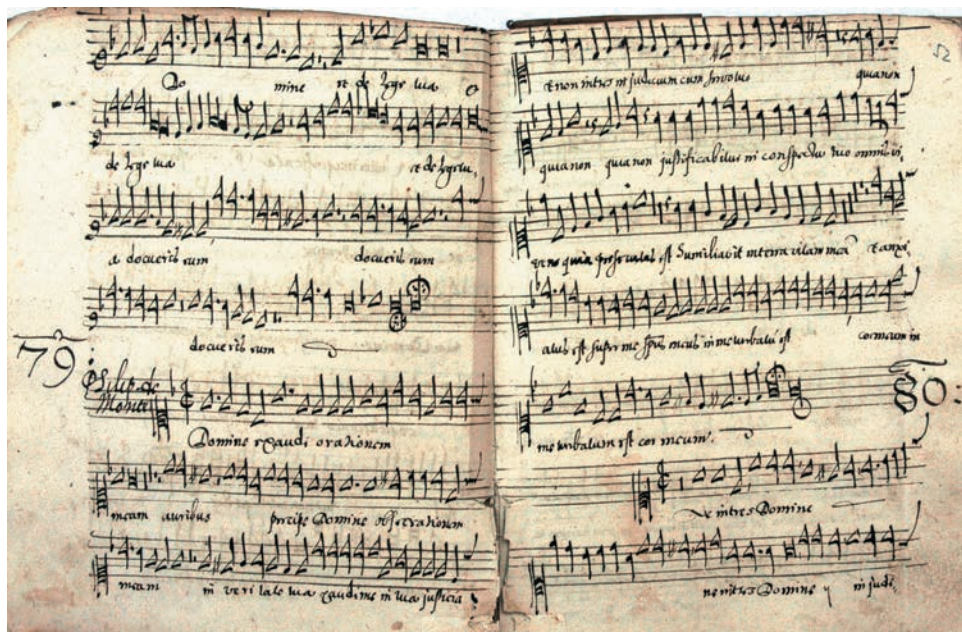 Do mine et de lege tua e
de lege tua et de legetu,
a docueris eum docueris eum
docueris eum
79
Filip. de Monte
Domine exaudi orationem
meam auribus percipe Domine obsecrationem
meam in veritate tua exaudi me in tua justicia
52
et non intres in judicium cum servo tuo quia non
quia non quia non justificabitur in conspectu tuo omnis vi,
est humiliavit in terra vitam meã et anxi
atus est super me spũs meus in me turbatũ est cor meum in
80:
me turbatum est cor meum.
ne intres Domine
ne intres Domine ij in judi,